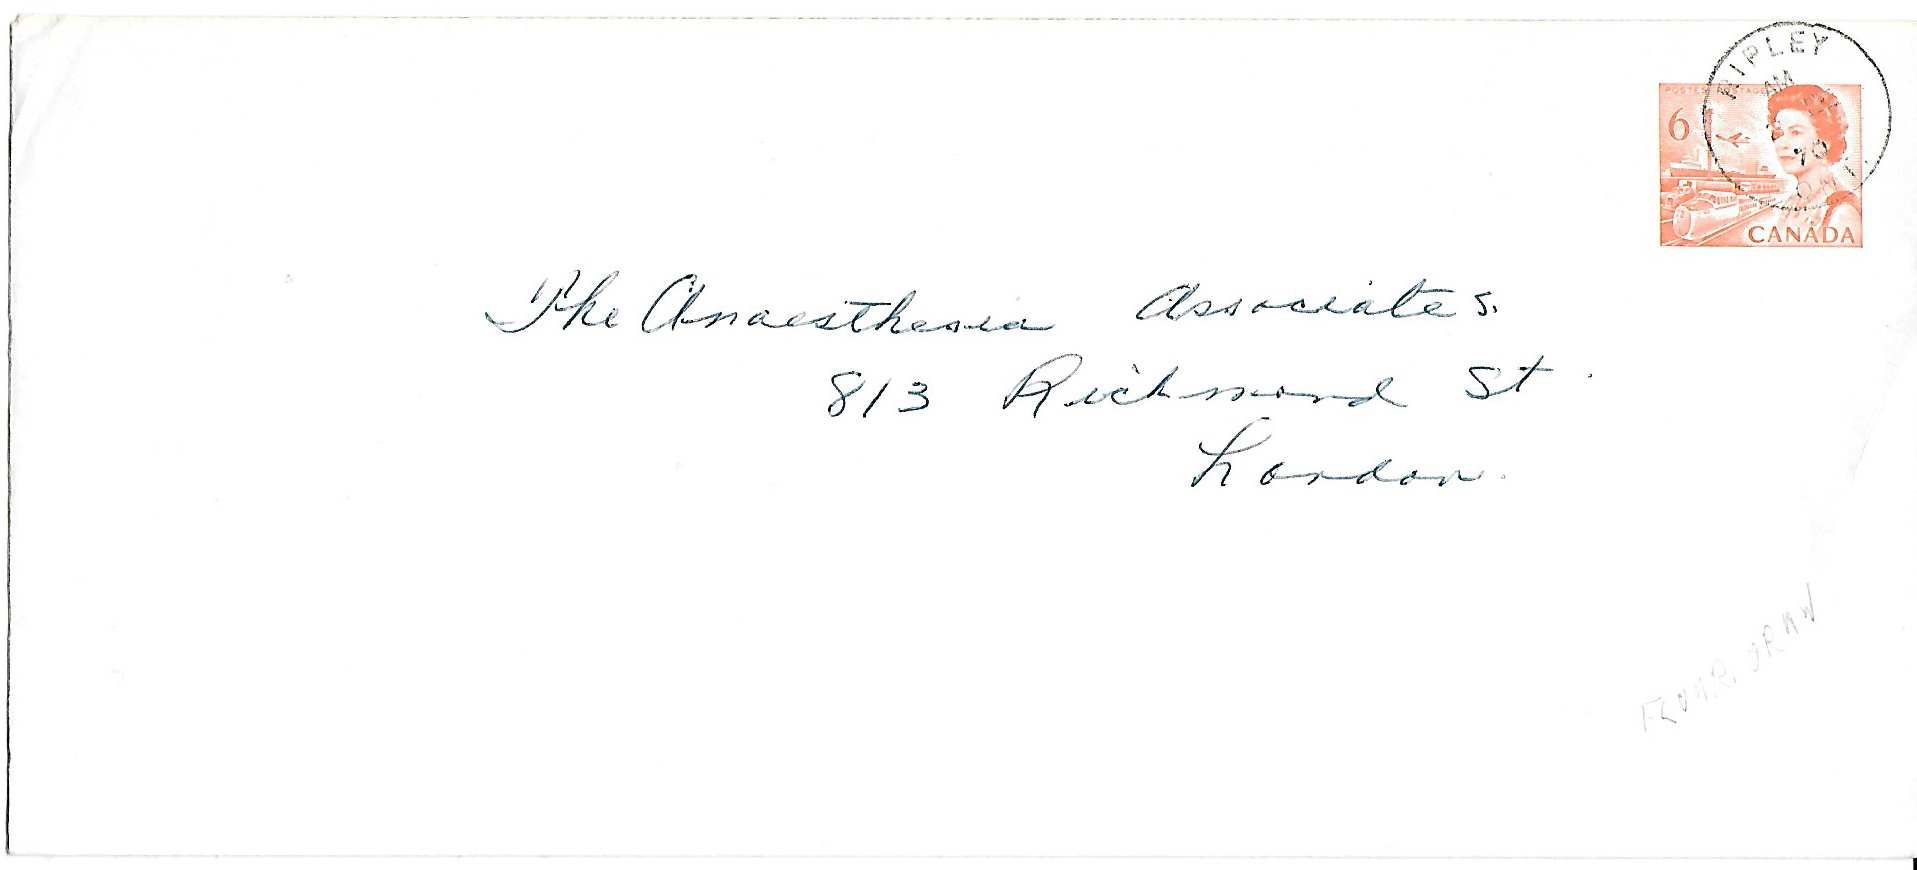 RIPLEY
AM
70
ON
POSTES POSTAGE
6
CANADA
The Anaesthesia Associates.
813 Richmond St.
London.